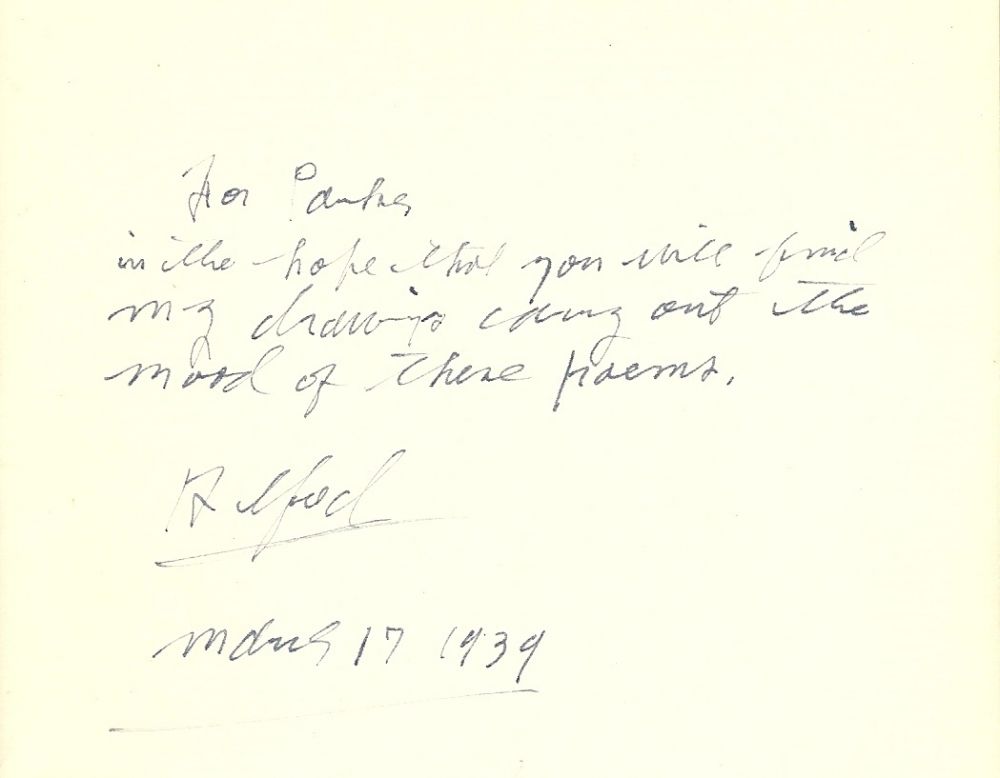 For Parker
in the hope that you will find
my drawings carry out the
mood of these poems.
Alfred
March 17 1939